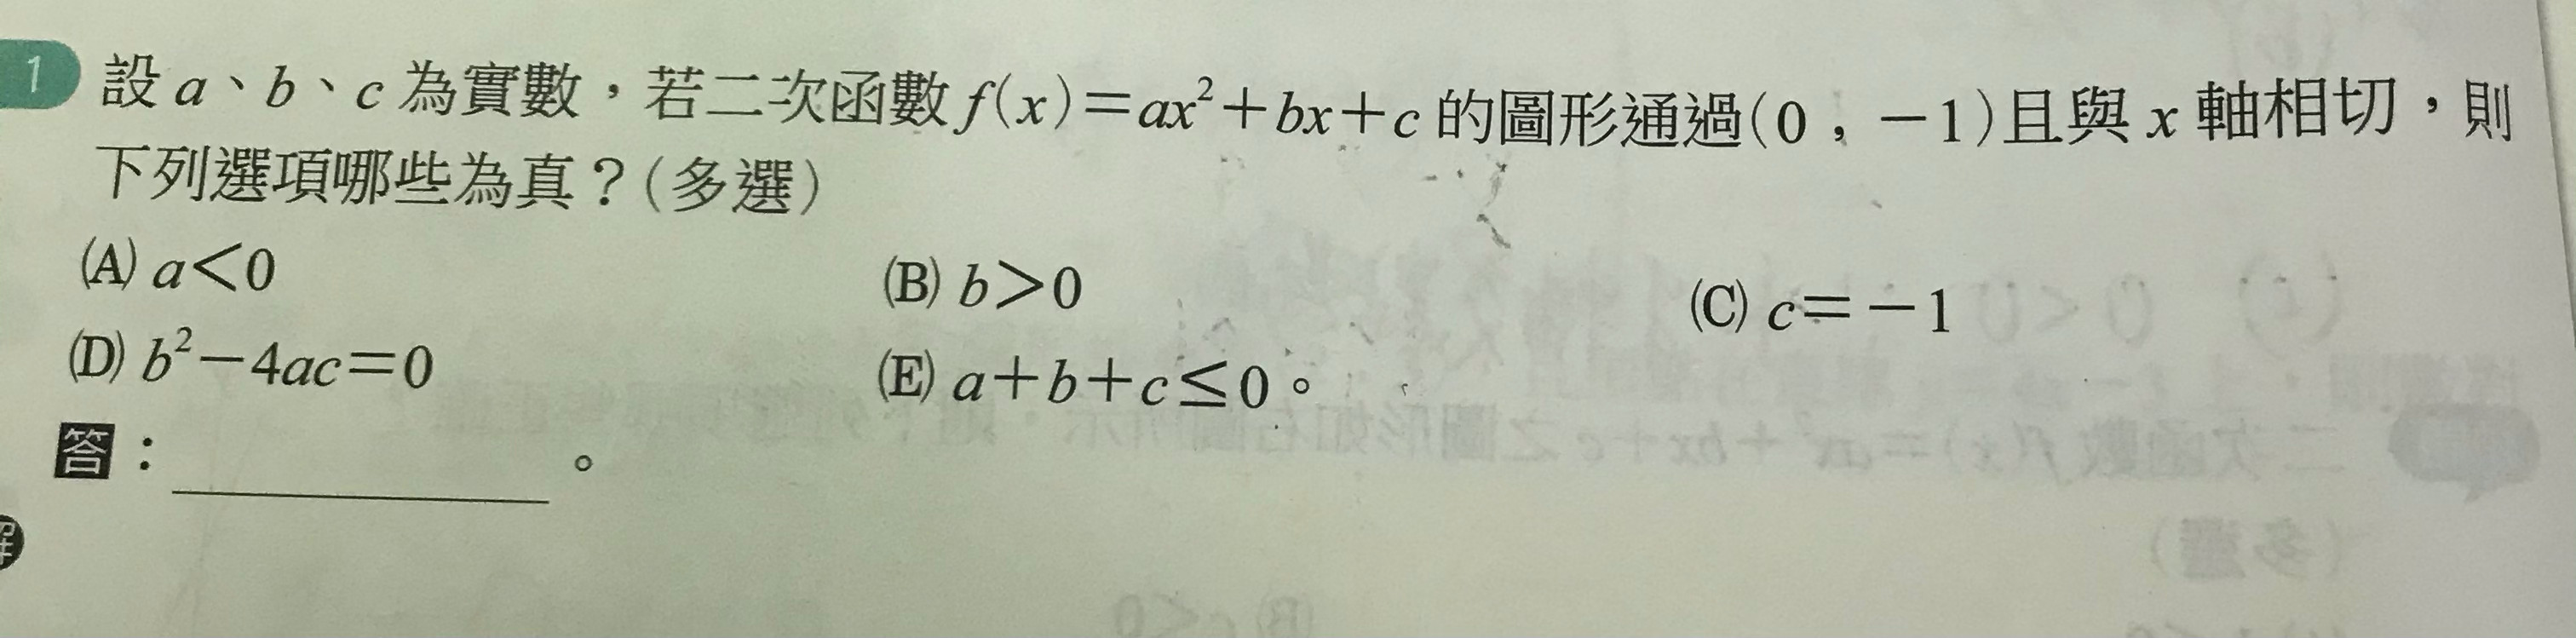 1 設 a、b、c 為實數，若二次函數 f(x)=ax²+bx+c 的圖形通過(0，-1)且與 x 軸相切，則
下列選項哪些為真？(多選)
(A) a<0 (B) b>0 (C) c=-1
(D) b²-4ac=0 (E) a+b+c≤0。
答：＿＿＿＿＿＿。
解